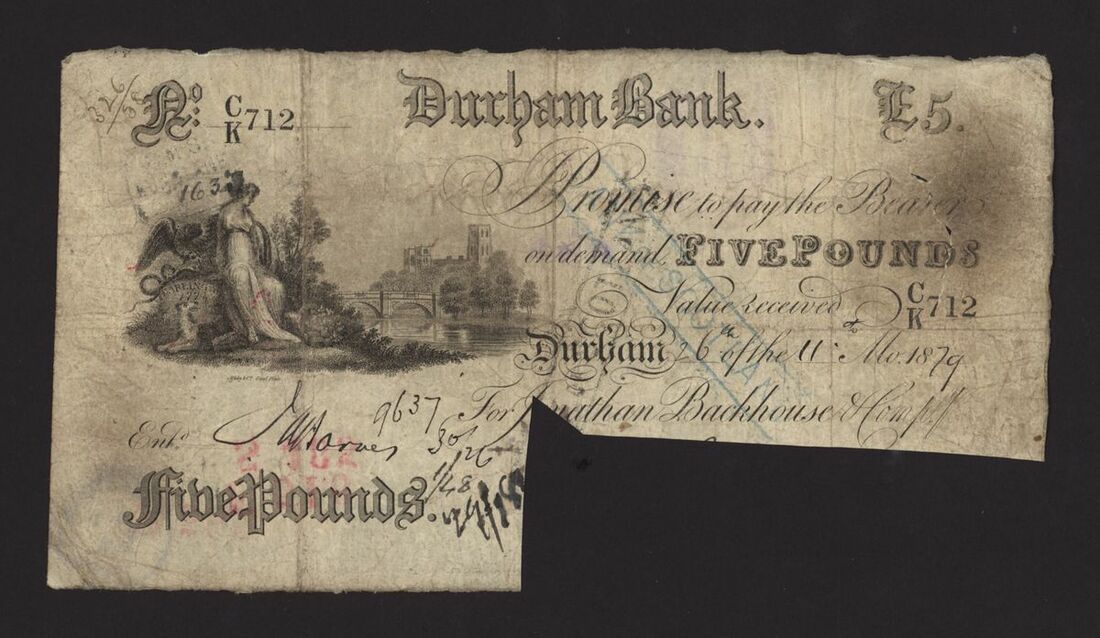 No: C/K 712 Durham Bank. £5.
163
I Promise to pay the Bearer
on demand, FIVE POUNDS
Value received C/K 712
Durham 26th of the 11 Mo. 1879
For Jonathan Backhouse & Comp.y
9637
Entd
30/26
1/48
Five Pounds.